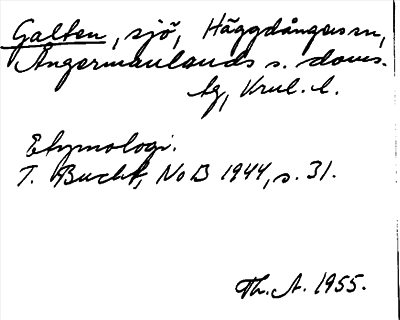 Galten, sjö, Häggdångers sn,
Ångermanlands s. doms.
lg, Vnrl. l.
Etymologi.
T. Bucht, NoB 1944, s. 31.
Th. A. 1955.